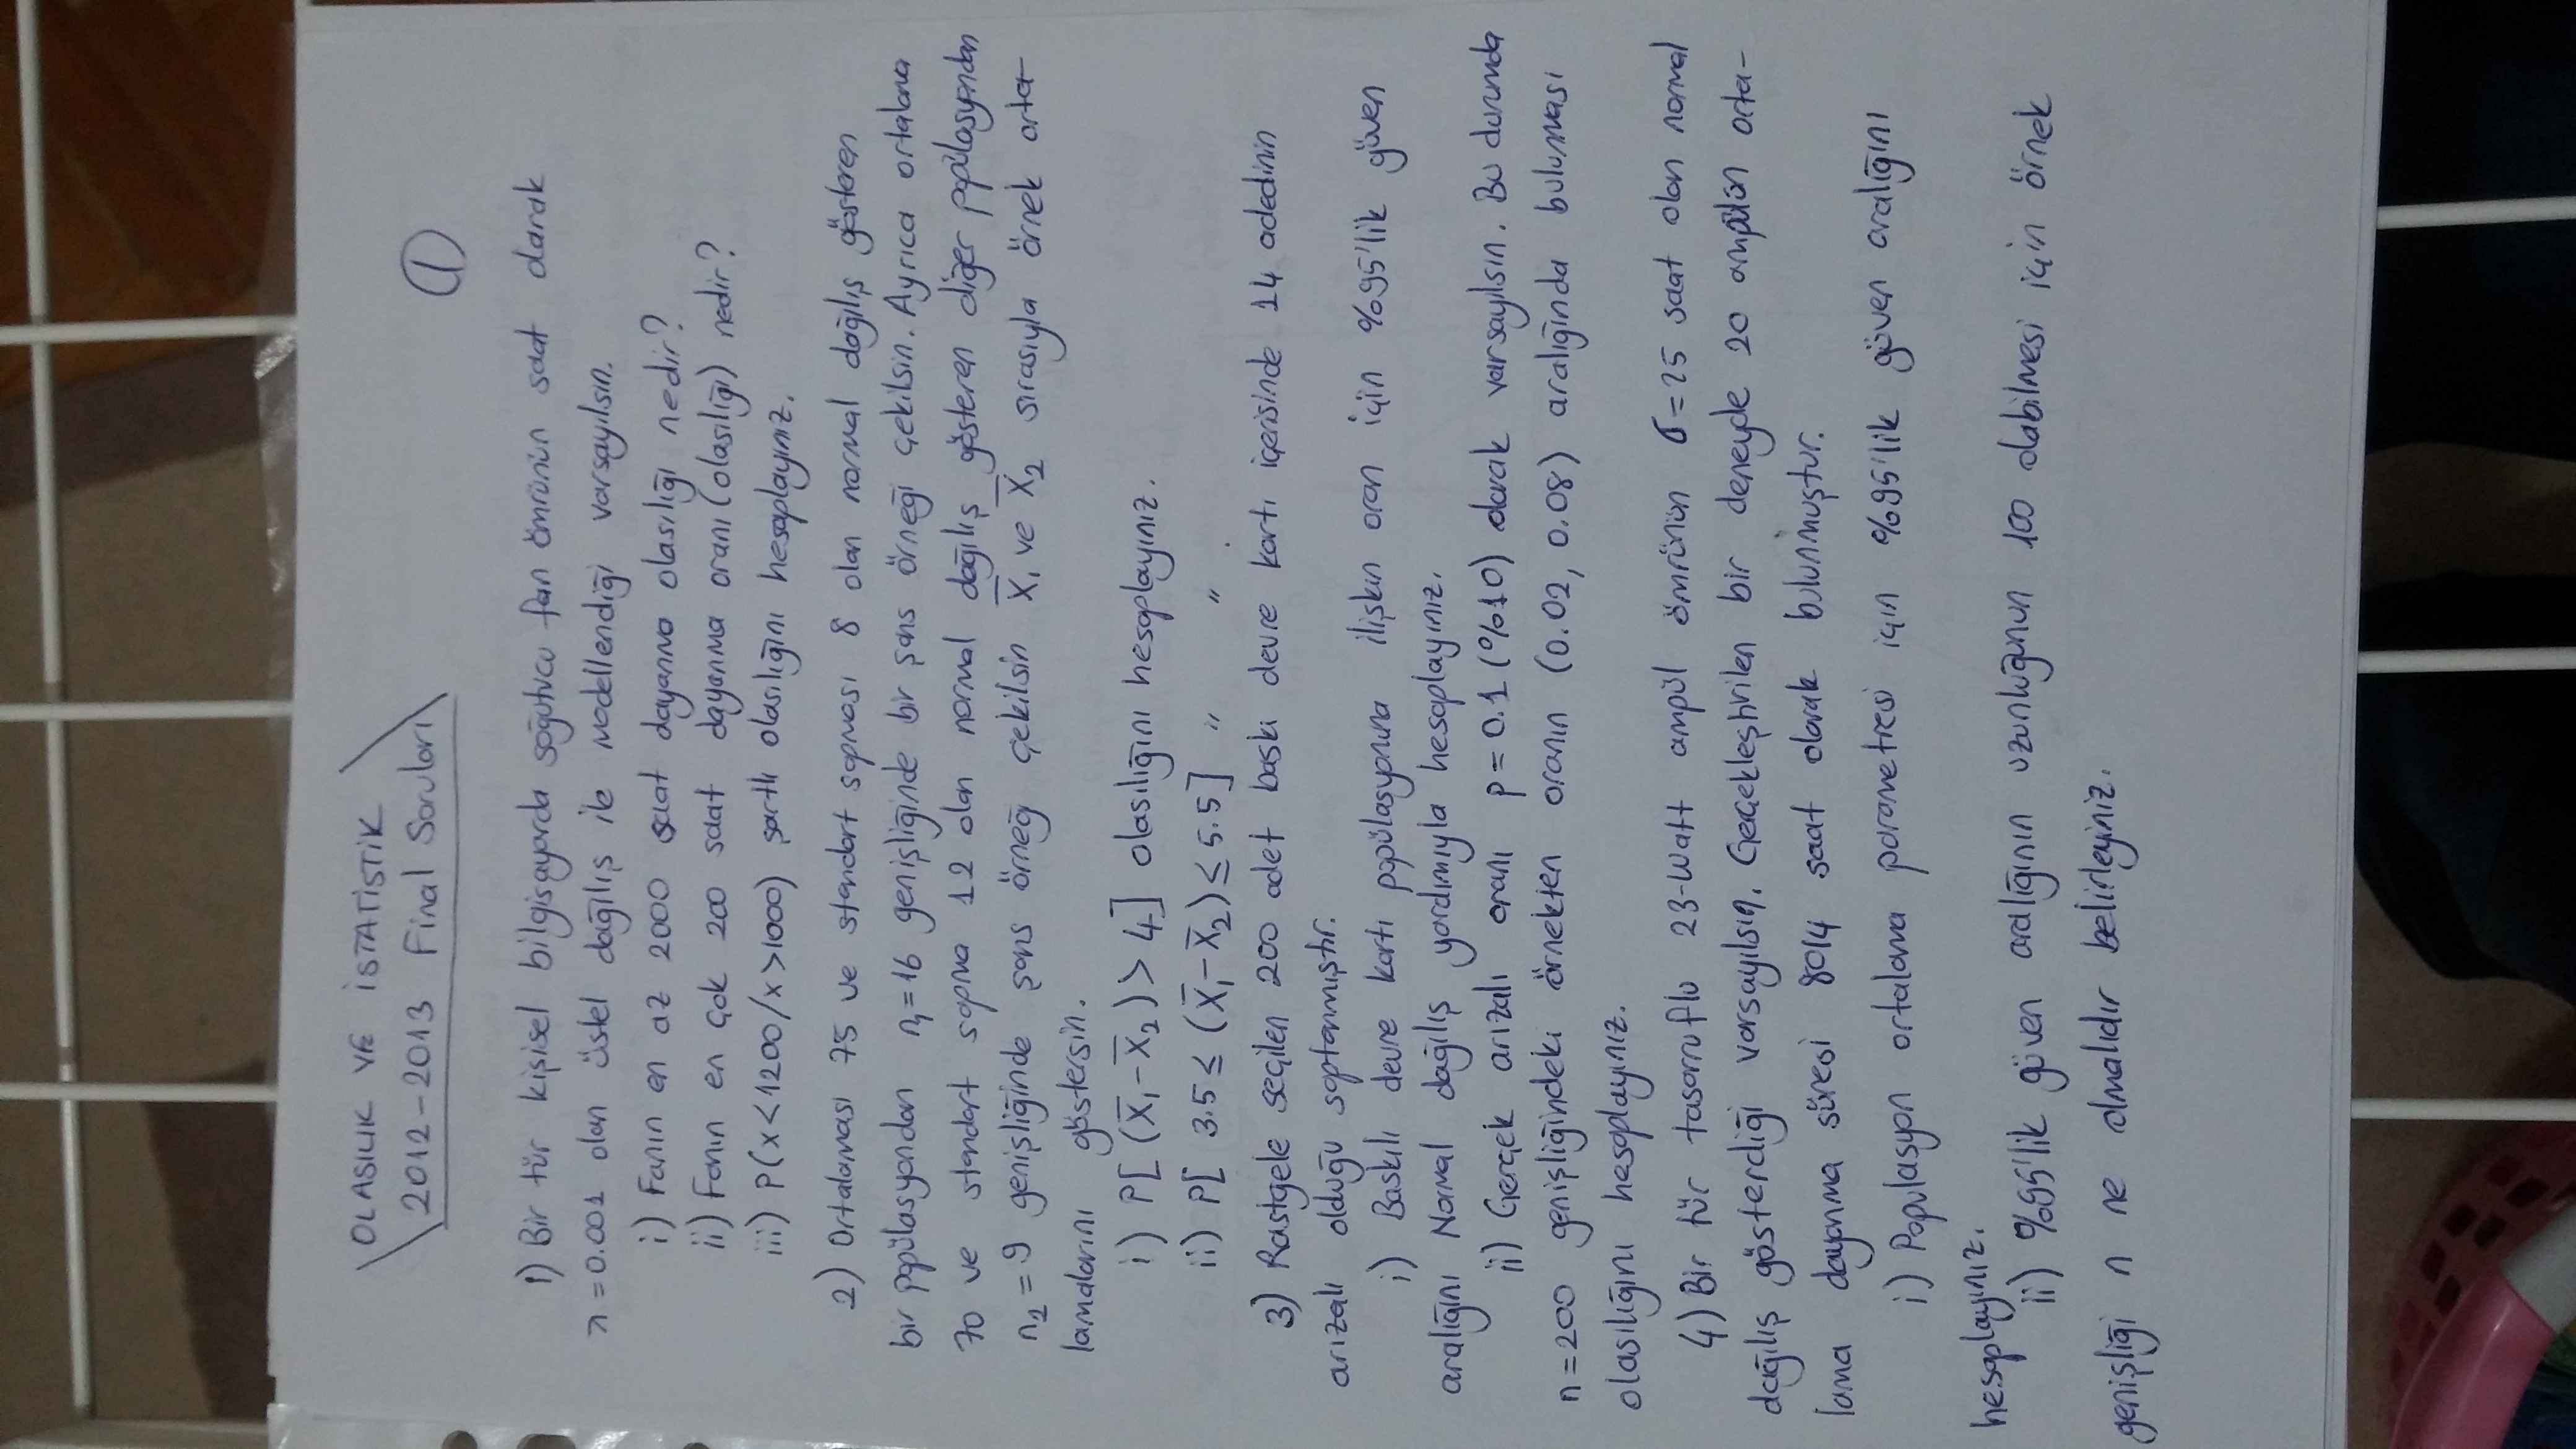 OLASILIK VE İSTATİSTİK
2012-2013 Final Soruları
1
1) Bir tür kişisel bilgisayarda soğutucu fan ömrünün saat olarak
λ=0.001 olan üstel dağılış ile modellendiği varsayılsın.
i) Fanın en az 2000 saat dayanma olasılığı nedir?
ii) Fanın en çok 200 saat dayanma oranı (olasılığı) nedir?
iii) P(x<1200/x>1000) şartlı olasılığını hesaplayınız.
2) Ortalaması 75 ve standart sapması 8 olan normal dağılış gösteren
bir popülasyondan n₁=16 genişliğinde bir şans örneği çekilsin. Ayrıca ortalama
70 ve standart sapma 12 olan normal dağılış gösteren diğer popülasyondan
n₂=9 genişliğinde şans örneği çekilsin X̄₁ ve X̄₂ sırasıyla örnek orta-
lamalarını göstersin.
i) P[(X̄₁-X̄₂)>4] olasılığını hesaplayınız.
ii) P[3.5≤(X̄₁-X̄₂)≤5.5] " " .
3) Rastgele seçilen 200 adet baskı devre kartı içerisinde 14 adedinin
arızalı olduğu saptanmıştır.
i) Baskılı devre kartı popülasyonuna ilişkin oran için %95'lik güven
aralığını Normal dağılış yardımıyla hesaplayınız.
ii) Gerçek arızalı oranı p=0.1 (%10) olarak varsayılsın. Bu durumda
n=200 genişliğindeki örnekten oranın (0.02, 0.08) aralığında bulunması
olasılığını hesaplayınız.
4) Bir tür tasarruflu 23-Watt ampül ömrünün σ=25 saat olan normal
dağılış gösterdiği varsayılsın. Gerçekleştirilen bir deneyde 20 ampülün orta-
lama dayanma süresi 8014 saat olarak bulunmuştur.
i) Populasyon ortalama parametresi için %95'lik güven aralığını
hesaplayınız.
ii) %95'lik güven aralığının uzunluğunun 100 olabilmesi için örnek
genişliği n ne olmalıdır belirleyiniz.